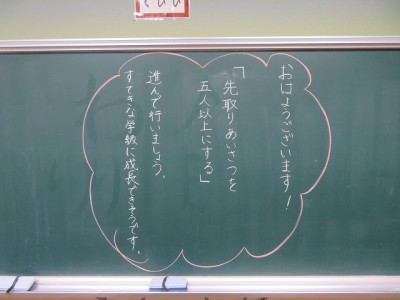 おはようございます!
「先取りあいさつを
五人以上にする」
進んで行いましょう。
すてきな学級に成長できそうです。